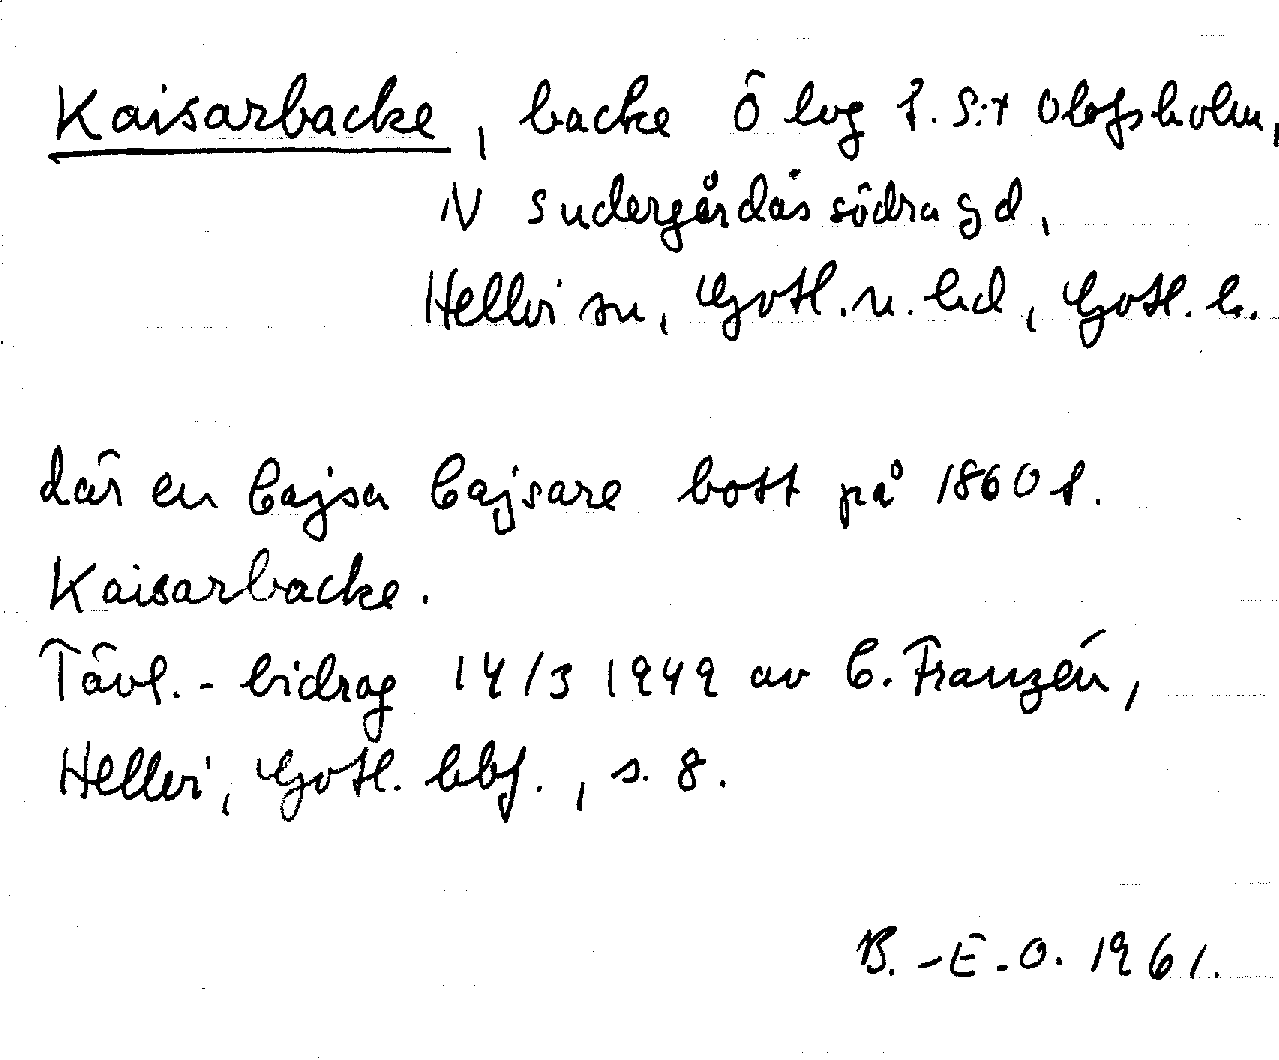 Kaisarbacke, backe Ö lvg t. S:t Olofsholm,
N Sudergårdas södra gd,
Hellvi sn, Gotl. n. hd, Gotl. l.
där en Cajsa Cajsare bott på 1860 t.
Kaisarbacke.
Tävl.-bidrag 14/3 1949 av C. Franzén,
Hellvi, Gotl. hbf., s. 8.
B.-E. O. 1961.